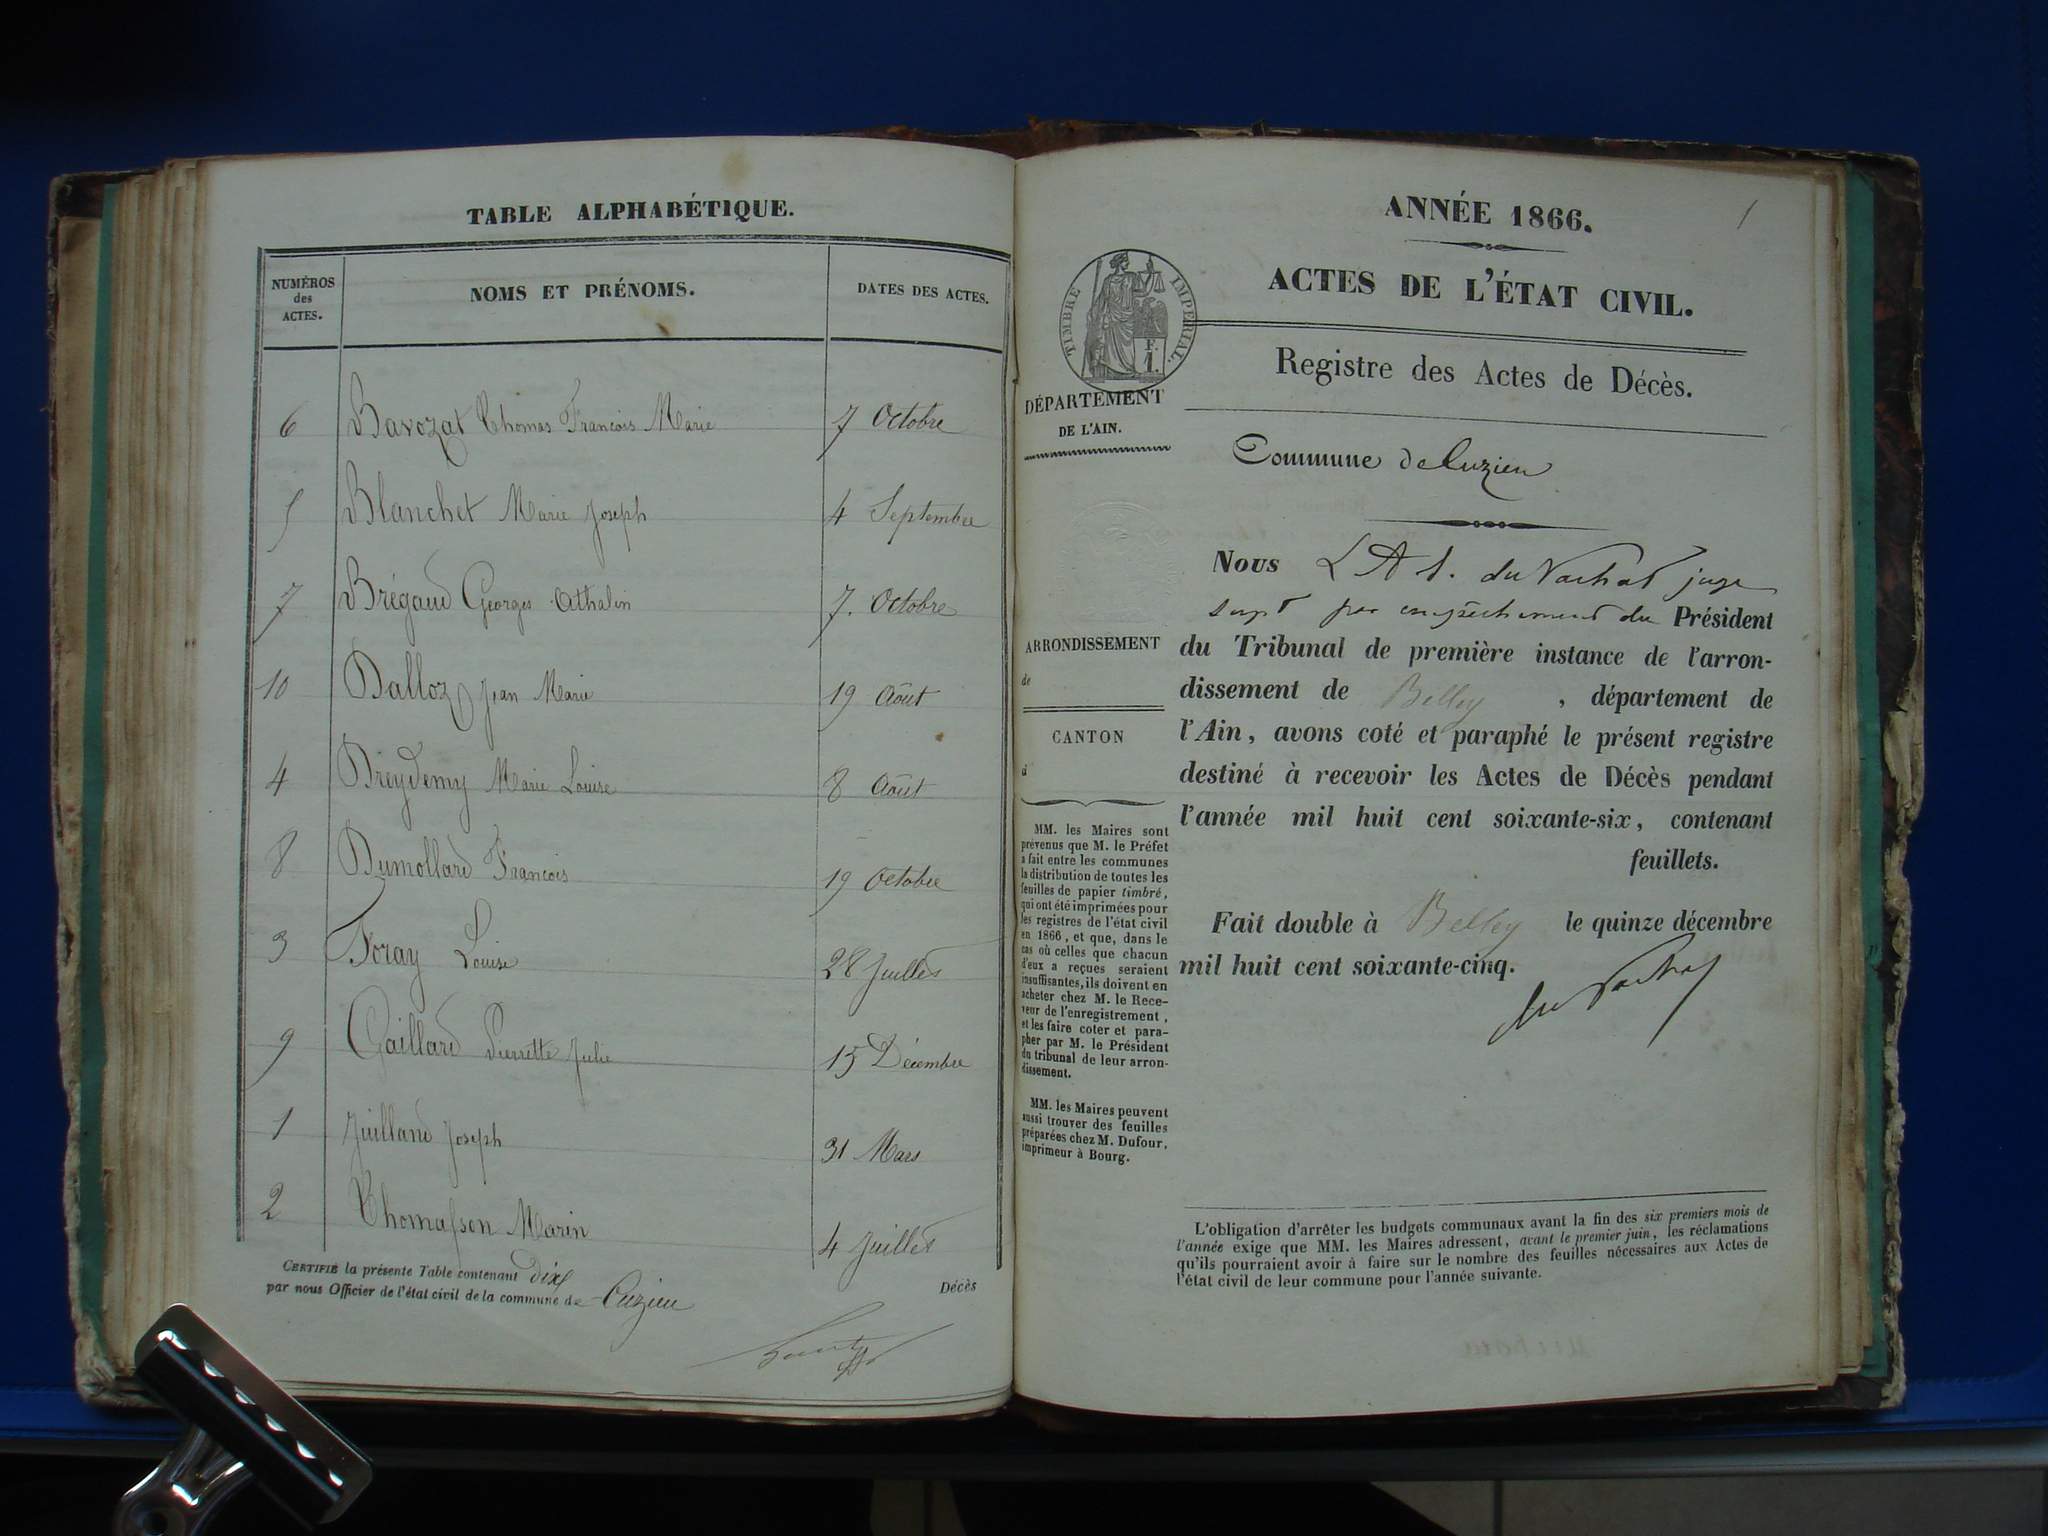 TABLE ALPHABÉTIQUE.
NUMÉROS des ACTES. NOMS ET PRÉNOMS. DATES DES ACTES.
6 Bavozat Thomas François Marie 7 Octobre
5 Blanchet Marie Joseph 4 Septembre
7 Brégaud Georges Athalin 7. Octobre
10 Dalloz Jean Marie 19 Août
4 Dreydemy Marie Louise 8 Août
8 Dumollard François 19 Octobre
3 Foray Louise 28 Juillet
9 Gaillard Pierrette Julie 15 Décembre
1 Juilland Joseph 31 Mars
2 Thomasson Marin 4 Juillet
CERTIFIÉ la présente Table contenant dix Décès
par nous Officier de l'état civil de la commune de Cuzieu
1
ANNÉE 1866.
ACTES DE L'ÉTAT CIVIL.
Registre des Actes de Décès.
TIMBRE IMPÉRIAL.
F.
1.
DÉPARTEMENT
DE L'AIN.
Commune de Cuzieu
Nous L A du Vachat juge
supt par empêchement du Président
du Tribunal de première instance de l'arron-
dissement de Belley, département de
l'Ain, avons coté et paraphé le présent registre
destiné à recevoir les Actes de Décès pendant
l'année mil huit cent soixante-six, contenant
feuillets.
Fait double à Belley le quinze décembre
mil huit cent soixante-cinq.
du Vachat
ARRONDISSEMENT
de
CANTON
d
MM. les Maires sont
prévenus que M. le Préfet
a fait entre les communes
la distribution de toutes les
feuilles de papier timbré,
qui ont été imprimées pour
les registres de l'état civil
en 1866, et que, dans le
cas où celles que chacun
d'eux a reçues seraient
insuffisantes, ils doivent en
acheter chez M. le Rece-
veur de l'enregistrement,
et les faire coter et para-
pher par M. le Président
du tribunal de leur arron-
dissement.
MM. les Maires peuvent
aussi trouver des feuilles
préparées chez M. Dufour,
imprimeur à Bourg.
L'obligation d'arrêter les budgets communaux avant la fin des six premiers mois de
l'année exige que MM. les Maires adressent, avant le premier juin, les réclamations
qu'ils pourraient avoir à faire sur le nombre des feuilles nécessaires aux Actes de
l'état civil de leur commune pour l'année suivante.